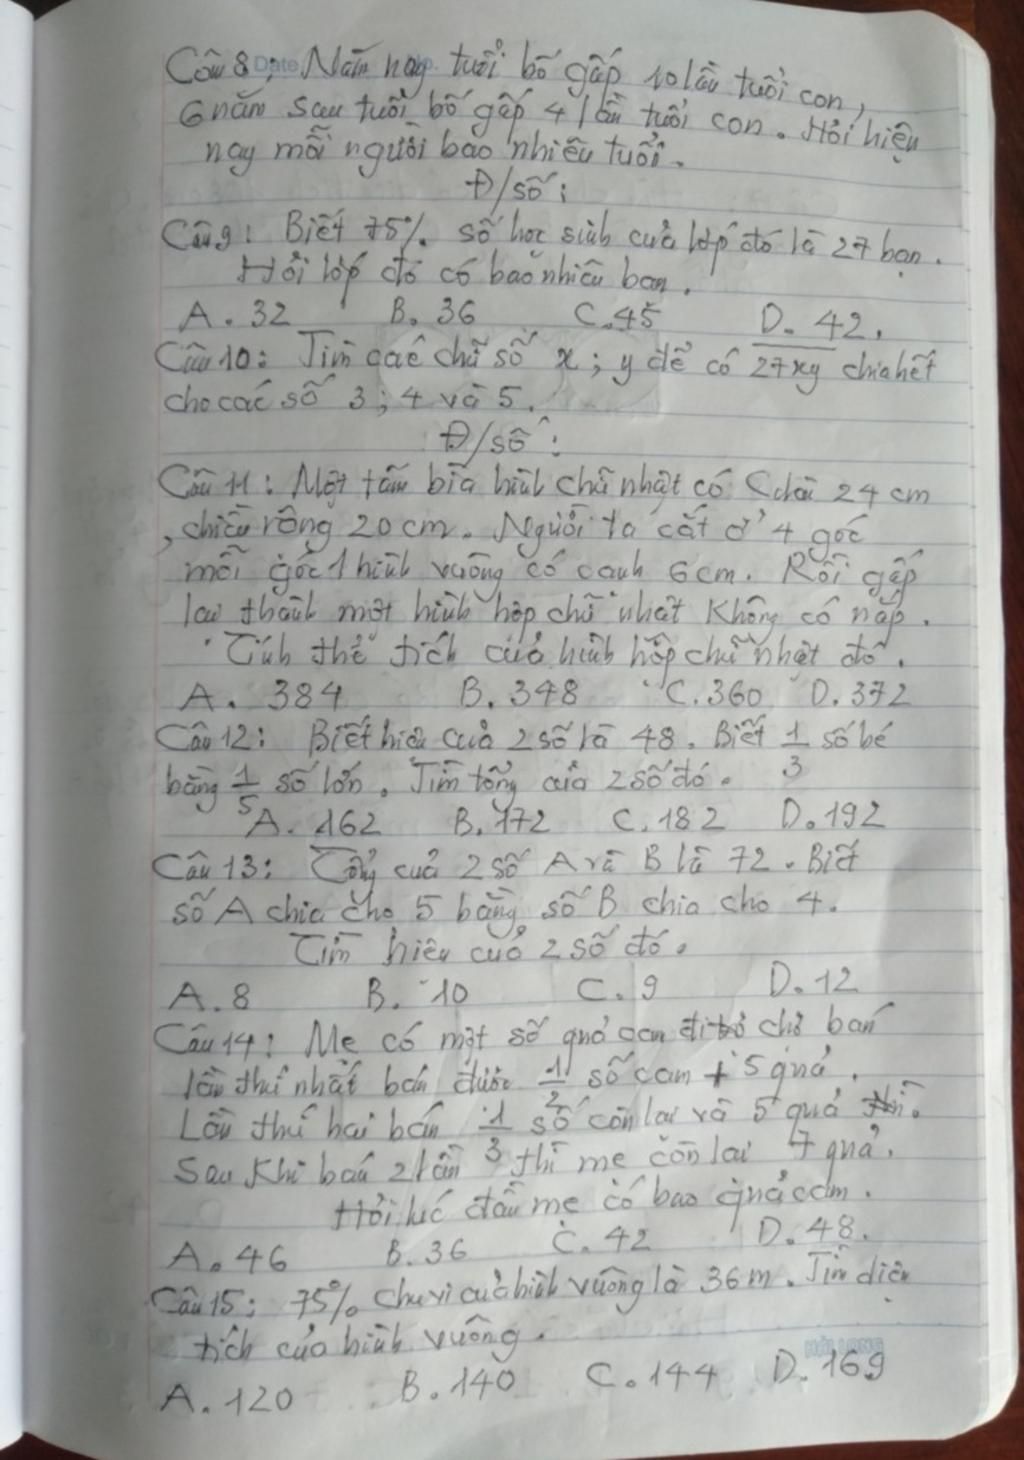 Câu 8: Năm nay tuổi bố gấp 10 lần tuổi con,
6 năm sau tuổi bố gấp 4 lần tuổi con. Hỏi hiện
nay mỗi người bao nhiêu tuổi.
Đ/số:
Câu 9: Biết 75% số học sinh của lớp đó là 27 bạn.
Hỏi lớp đó có bao nhiêu bạn.
A. 32 B. 36 C. 45 D. 42.
Câu 10: Tìm các chữ số x; y để có 27xy chia hết
cho các số 3; 4 và 5.
Đ/số:
Câu 11: Một tấm bìa hình chữ nhật có C dài 24 cm
, chiều rộng 20 cm. Người ta cắt ở 4 góc
mỗi góc 1 hình vuông có cạnh 6 cm. Rồi gấp
lại thành một hình hộp chữ nhật không có nắp.
Tính thể tích của hình hộp chữ nhật đó.
A. 384 B. 348 C. 360 D. 372
Câu 12: Biết hiệu của 2 số là 48. Biết 1/3 số bé
bằng 1/5 số lớn. Tìm tổng của 2 số đó.
A. 162 B. 172 C. 182 D. 192
Câu 13: Tổng của 2 số A và B là 72. Biết
số A chia cho 5 bằng số B chia cho 4.
Tìm hiệu của 2 số đó.
A. 8 B. 10 C. 9 D. 12
Câu 14: Mẹ có một số quả cam đi chợ bán
lần thứ nhất bán được 1/2 số cam + 5 quả.
Lần thứ hai bán 1/3 số còn lại và 5 quả.
Sau khi bán 2 lần thì mẹ còn lại 7 quả.
Hỏi lúc đầu mẹ có bao quả cam.
A. 46 B. 36 C. 42 D. 48.
Câu 15: 75% chu vi của hình vuông là 36 m. Tìm diện
tích của hình vuông.
HẢI LONG
A. 120 B. 140 C. 144 D. 169